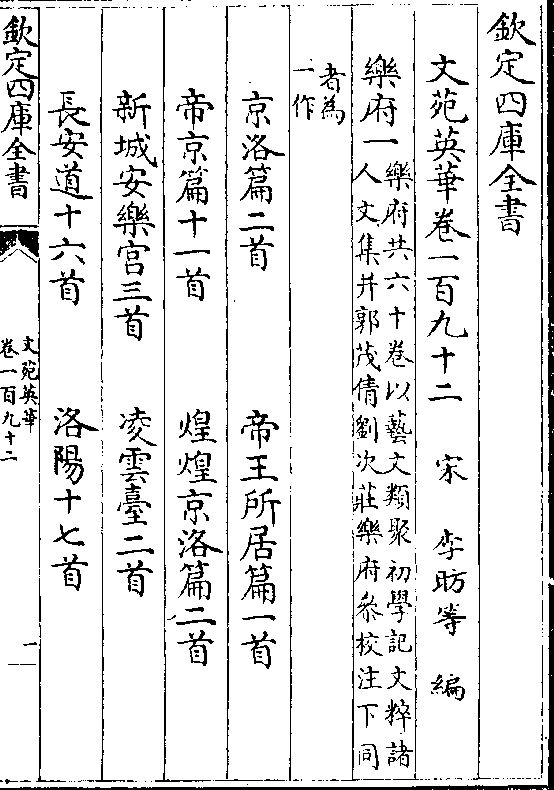 欽定四庫全書
文苑英華卷一百九十二 宋 李昉等 編
樂府一
樂府共六十卷以藝文類聚初學記文粹諸
人文集并郭茂倩劉次莊樂府叅校注下同
者為
一作
京洛篇二首 帝王所居篇一首
帝京篇十一首 煌煌京洛篇二首
新城安樂宫三首 凌雲臺二首
長安道十六首 洛陽十七首
欽定四庫全書
文苑英華
卷一百九十二
一